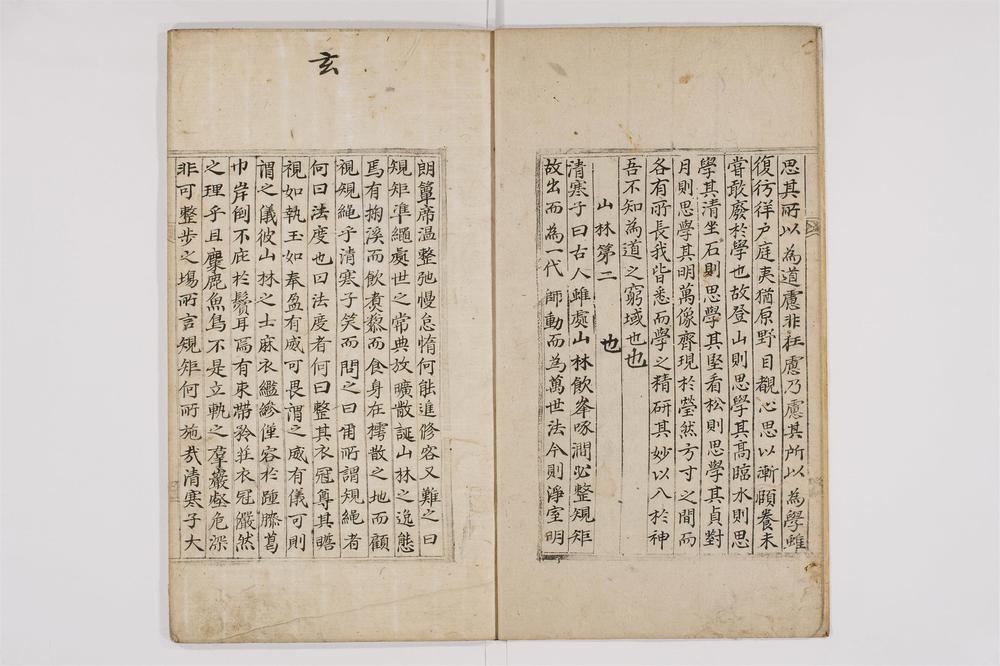 思其所以為道慮非枉慮乃慮其所以為學雖
復彷徉戶庭夷猶原野目覩心思以漸頤養未
嘗敢廢於學也故登山則思學其高臨水則思
學其清坐石則思學其堅看松則思學其貞對
月則思學其明萬像齊現於瑩然方寸之間而
各有所長我皆悉而學之精研其妙以入於神
吾不知為道之窮域也也
山林第二
也
清寒子曰古人雖處山林飲峯啄澗必整規矩
故出而為一代師動而為萬世法今則淨室明
玄
朗簟席溫整弛慢怠惰何能進修客又難之曰
規矩準繩處世之常典放曠散誕山林之逸態
焉有掬溪而飲煮蔾而食身在樗散之地而顧
視規繩乎清寒子笑而問之曰甭所謂規繩者
何曰法度也曰法度者何曰整其衣冠尊其瞻
視如執玉如奉盈有威可畏謂之威有儀可則
謂之儀彼山林之士麻衣繿縿僅容於踵膝葛
巾岸倒不庇於鬢耳焉有束帶矜莊衣冠儼然
之理乎且麋鹿魚鳥不是立軌之羣巖壑危深
非可整步之場所言規矩何所施哉清寒子大